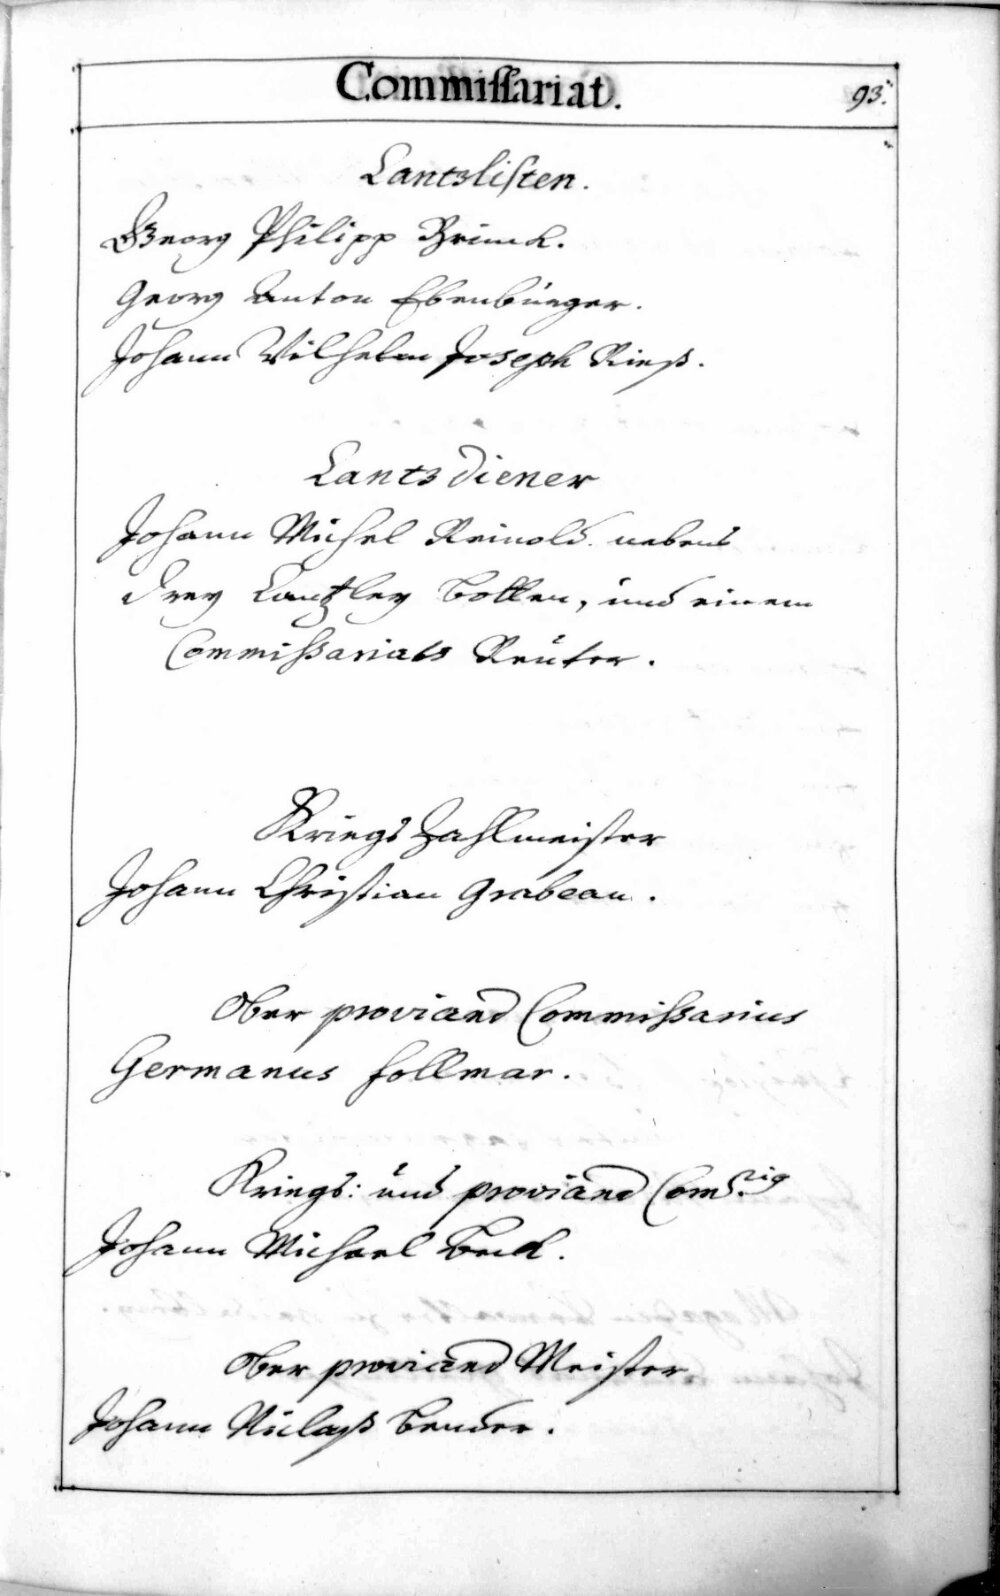 Commissariat.
93.
Cantzlisten.
Georg Philipp Brinck.
Georg Anton Ebenbürger.
Johann Wilhelm Joseph Rieß.
Cantzdiener
Johann Michel Reinold nebens
drey Cantzley Botten, und einem
Commißariats Reuter.
Kriegs Zahlmeister
Johann Christian Grabeau.
Ober proviand Commißarius
Germanus follmar.
Kriegs: und proviand
Johann Michael Beck.
Ober proviand Meister
Johann Niclaß Bender.